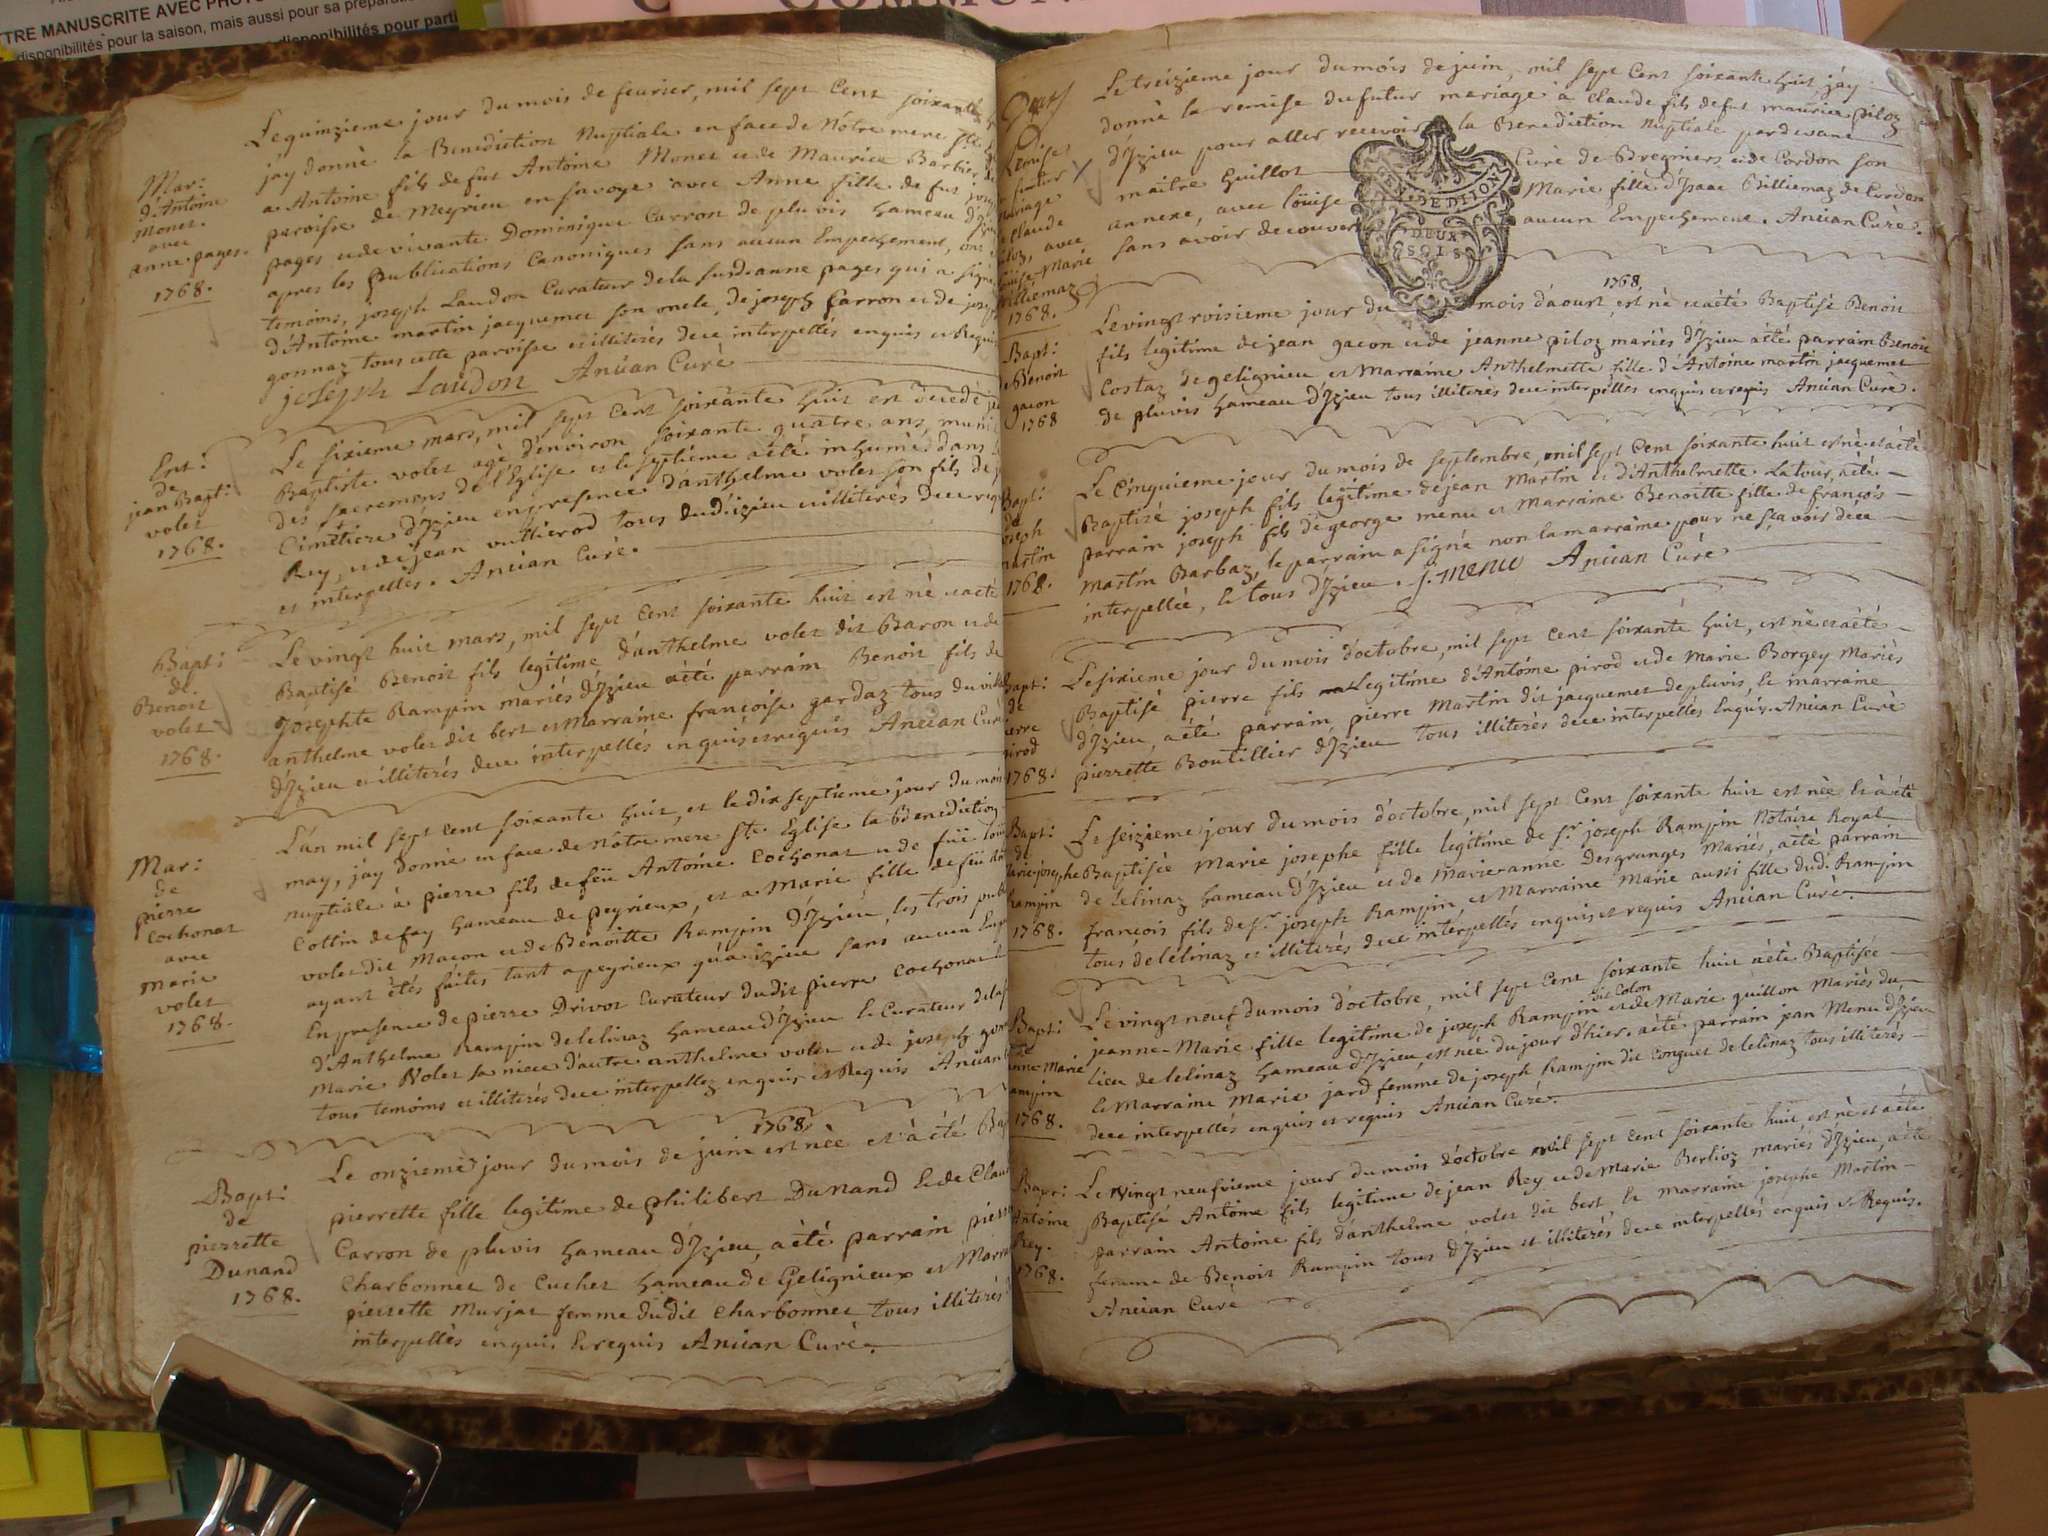 TRE MANUSCRITE AVEC PHOTO
disponibilités pour la saison, mais aussi pour sa prépara
disponibilités pour parti
COMMUN
Mar:
d'Antoine
Monet
avec
anne pages.
1768.
Le quinzieme jour du mois de fevrier, mil sept cent soixante
j'ay donné la Benediction Nuptiale en face de Nôtre mere Ste
a Antoine fils de fut Antoine Monet et de Maurice Barbier
paroisse de Meyrieu en savoye avec Anne fille de fut
pages et de vivante Dominique Carron de pluvis hameau d'
apres les publications Canoniques sans aucun Empechement,
temoins, joseph Laudon Curateur de la susd. anne pages qui a signé
d'Antoine martin jacquemet son oncle, de joseph Carron et de
gonnaz tous cette paroisse et illiterés de ce interpellés enquis et Requis
joseph Laudon Ancian Curè
Ent:
de
jean Bapt:
volet
1768.
Le sixieme mars, mil sept cent soixante huit est décedé
Baptiste volet agé d'environ soixante quatre ans, muni
des sacremens de l'Eglise et le septieme a été inhumé dans
Cimetiere d'Izieu en presence d'anthelme volet son fils de
Rey, et de jean vuttierod tous dud izieu et illiterés de ce
et interpellés. Ancian Curè.
Bapt:
de
Benoit
volet
1768.
Le vingt huit mars, mil sept cent soixante huit est nè et a eté
Baptisé Benoit fils legitime d'anthelme volet dit Baron et de
Josephte Rampin mariés d'Izieu a èté parrain Benoit fils de
anthelme volet dit bert et Marraine françoise gardaz tous du
d'Izieu et illiterés de ce interpellés enquis et requis Ancian Curè
Mar:
de
pierre
Cochonat
avec
Marie
volet
1768.
L'an mil sept cent soixante huit, et le dix septieme jour du mois
may, j'ay donné en face de nôtre mere Ste Eglise la Benediction
nuptiale à pierre fils de feü Antoine Cochonat et de füe
Cottin de fay hameau de peyrieux, et a Marie fille de feü
volet dit Macon et de Benoitte Rampin d'Izieu, les trois
ayant étés faites tant a peyrieux qu'a izieu sans aucun
En presence de pierre Drivot Curateur dudit pierre Cochonat
d'Anthelme Rampin de lelinaz hameau d'Izieu le Curateur de
Marie Volet sa niece d'autre anthelme volet et de joseph
tous temoins et illiterés de ce interpellez enquis et Requis Ancian
Bapt:
de
pierrette
Dunand
1768.
1768
Le onzieme jour du mois de juin est nèe et a èté
pierrette fille legitime de philibert Dunand et de
Carron de pluvis hameau d'Izieu, a èté parrain
Charbonnet de Cuchet hameau de Gelignieux et
pierrette Murjat femme dudit Charbonnet tous illiterés
interpellés enquis et requis Ancian Curè.
Remise
futur
Mariage
Claude
avec
Marie
Billiemaz
1768.
Le treizieme jour du mois de juin, mil sept cent soixante huit j'ay
donné la remise du futur mariage a Claude fils de fut maurice piloz
d'Izieu pour aller recevoir la Benediction Nuptiale pardevant
maitre Guillot Curé de Bregniers et de Cordon son
annexe, avec Loüise Marie fille d'Isaac Billiemaz de Cordon
sans avoir decouvert aucun Empechement. Ancian Curè.
GEN. DE DIJON
DEUX
SOLS
Bapt:
Benoit
gacon
1768
1768
Le vingt troisieme jour du mois d'aoust est nè et a èté Baptisé Benoit
fils legitime de jean gacon et de jeanne piloz mariés d'Izieu a èté parrain Benoit
Costaz de gelignieu et Marraine Anthelmette fille d'Antoine martin jacquemet
de pluvis hameau d'Izieu tous illiterés de ce interpellés enquis et requis Ancian Curè.
Bapt:
de
joseph
martin
1768.
Le Cinquieme jour du mois de septembre, mil sept cent soixante huit est nè et a èté
Baptizé joseph fils legitime de jean Martin et d'Anthelmette Latour, a èté
parrain joseph fils de george menu et Marraine Benoitte fille de françois
Martin Barbaz, le parrain a signé non la marraine pour ne sçavoir de ce
interpellée, le tous d'Izieu. j. menu Ancian Curé
Bapt:
de
pierre
pirod
1768.
Le sixieme jour du mois d'octobre, mil sept cent soixante huit, est nè et a èté
Baptisé pierre fils legitime d'Antoine pirod et de Marie Borgey Mariés
d'Izieu, a èté parrain pierre Martin dit jacquemet de pluvis, et marraine
pierrette Boutillier d'Izieu tous illiterés de ce interpellés Enquis. Ancian Curè
Bapt:
de
Marie josephe
Rampin
1768.
Le seizieme jour du mois d'octobre, mil sept cent soixante huit est nèe et à èté
Baptisée Marie josephe fille legitime de sr. joseph Rampin Notaire Royal
de Lelinaz hameau d'Izieu et de Marie anne desgranges Mariés, a èté parrain
françois fils de sr. joseph Rampin et Marraine Marie aussi fille dud. Rampin
tous de lelinaz et illiterés de ce interpellés enquis et requis Ancian Curè.
Bapt:
de
jeanne Marie
Rampin
1768.
Le vingt neuf du mois d'octobre, mil sept cent soixante huit a èté Baptisée
dit Colon
jeanne-Marie fille legitime de joseph Rampin et de Marie guillon Mariés du
lieu de lelinaz hameau d'Izieu est née du jour d'hier. a èté parrain jean Menu d'Izieu
et Marraine Marie jard femme de joseph Rampin dit Conguet de lelinaz tous illiterés
de ce interpellés enquis et requis Ancian Curè.
Bapt:
Antoine
Rey.
1768.
Le vingt neufvieme jour du mois d'octobre mil sept cent soixante huit, est nè et a èté
Baptisé Antoine fils legitime de jean Rey et de Marie Berlioz mariés d'Izieu, a èté
parrain Antoine fils d'anthelme volet dit bert, et marraine josephe Martin
femme de Benoit Rampin tous d'Izieu et illiterés de ce interpellés enquis et Requis.
Ancian Curé